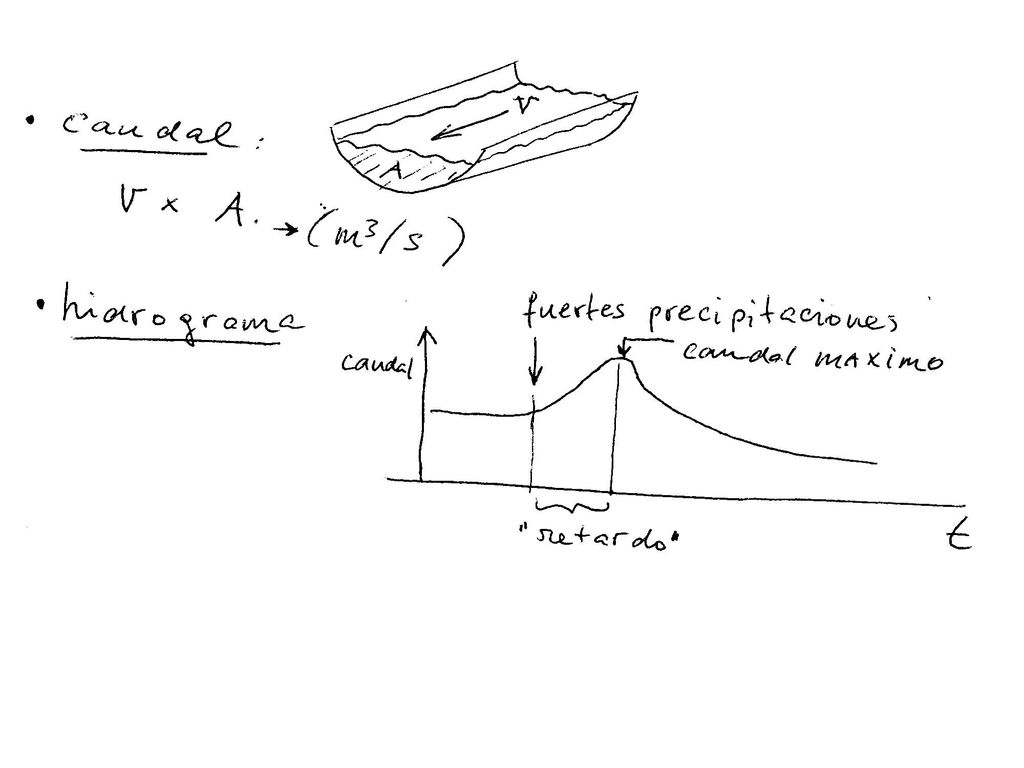 • caudal:
V
A
V × A. → (m³/s)
• hidrograma
fuertes precipitaciones
caudal maximo
caudal
"retardo"
t